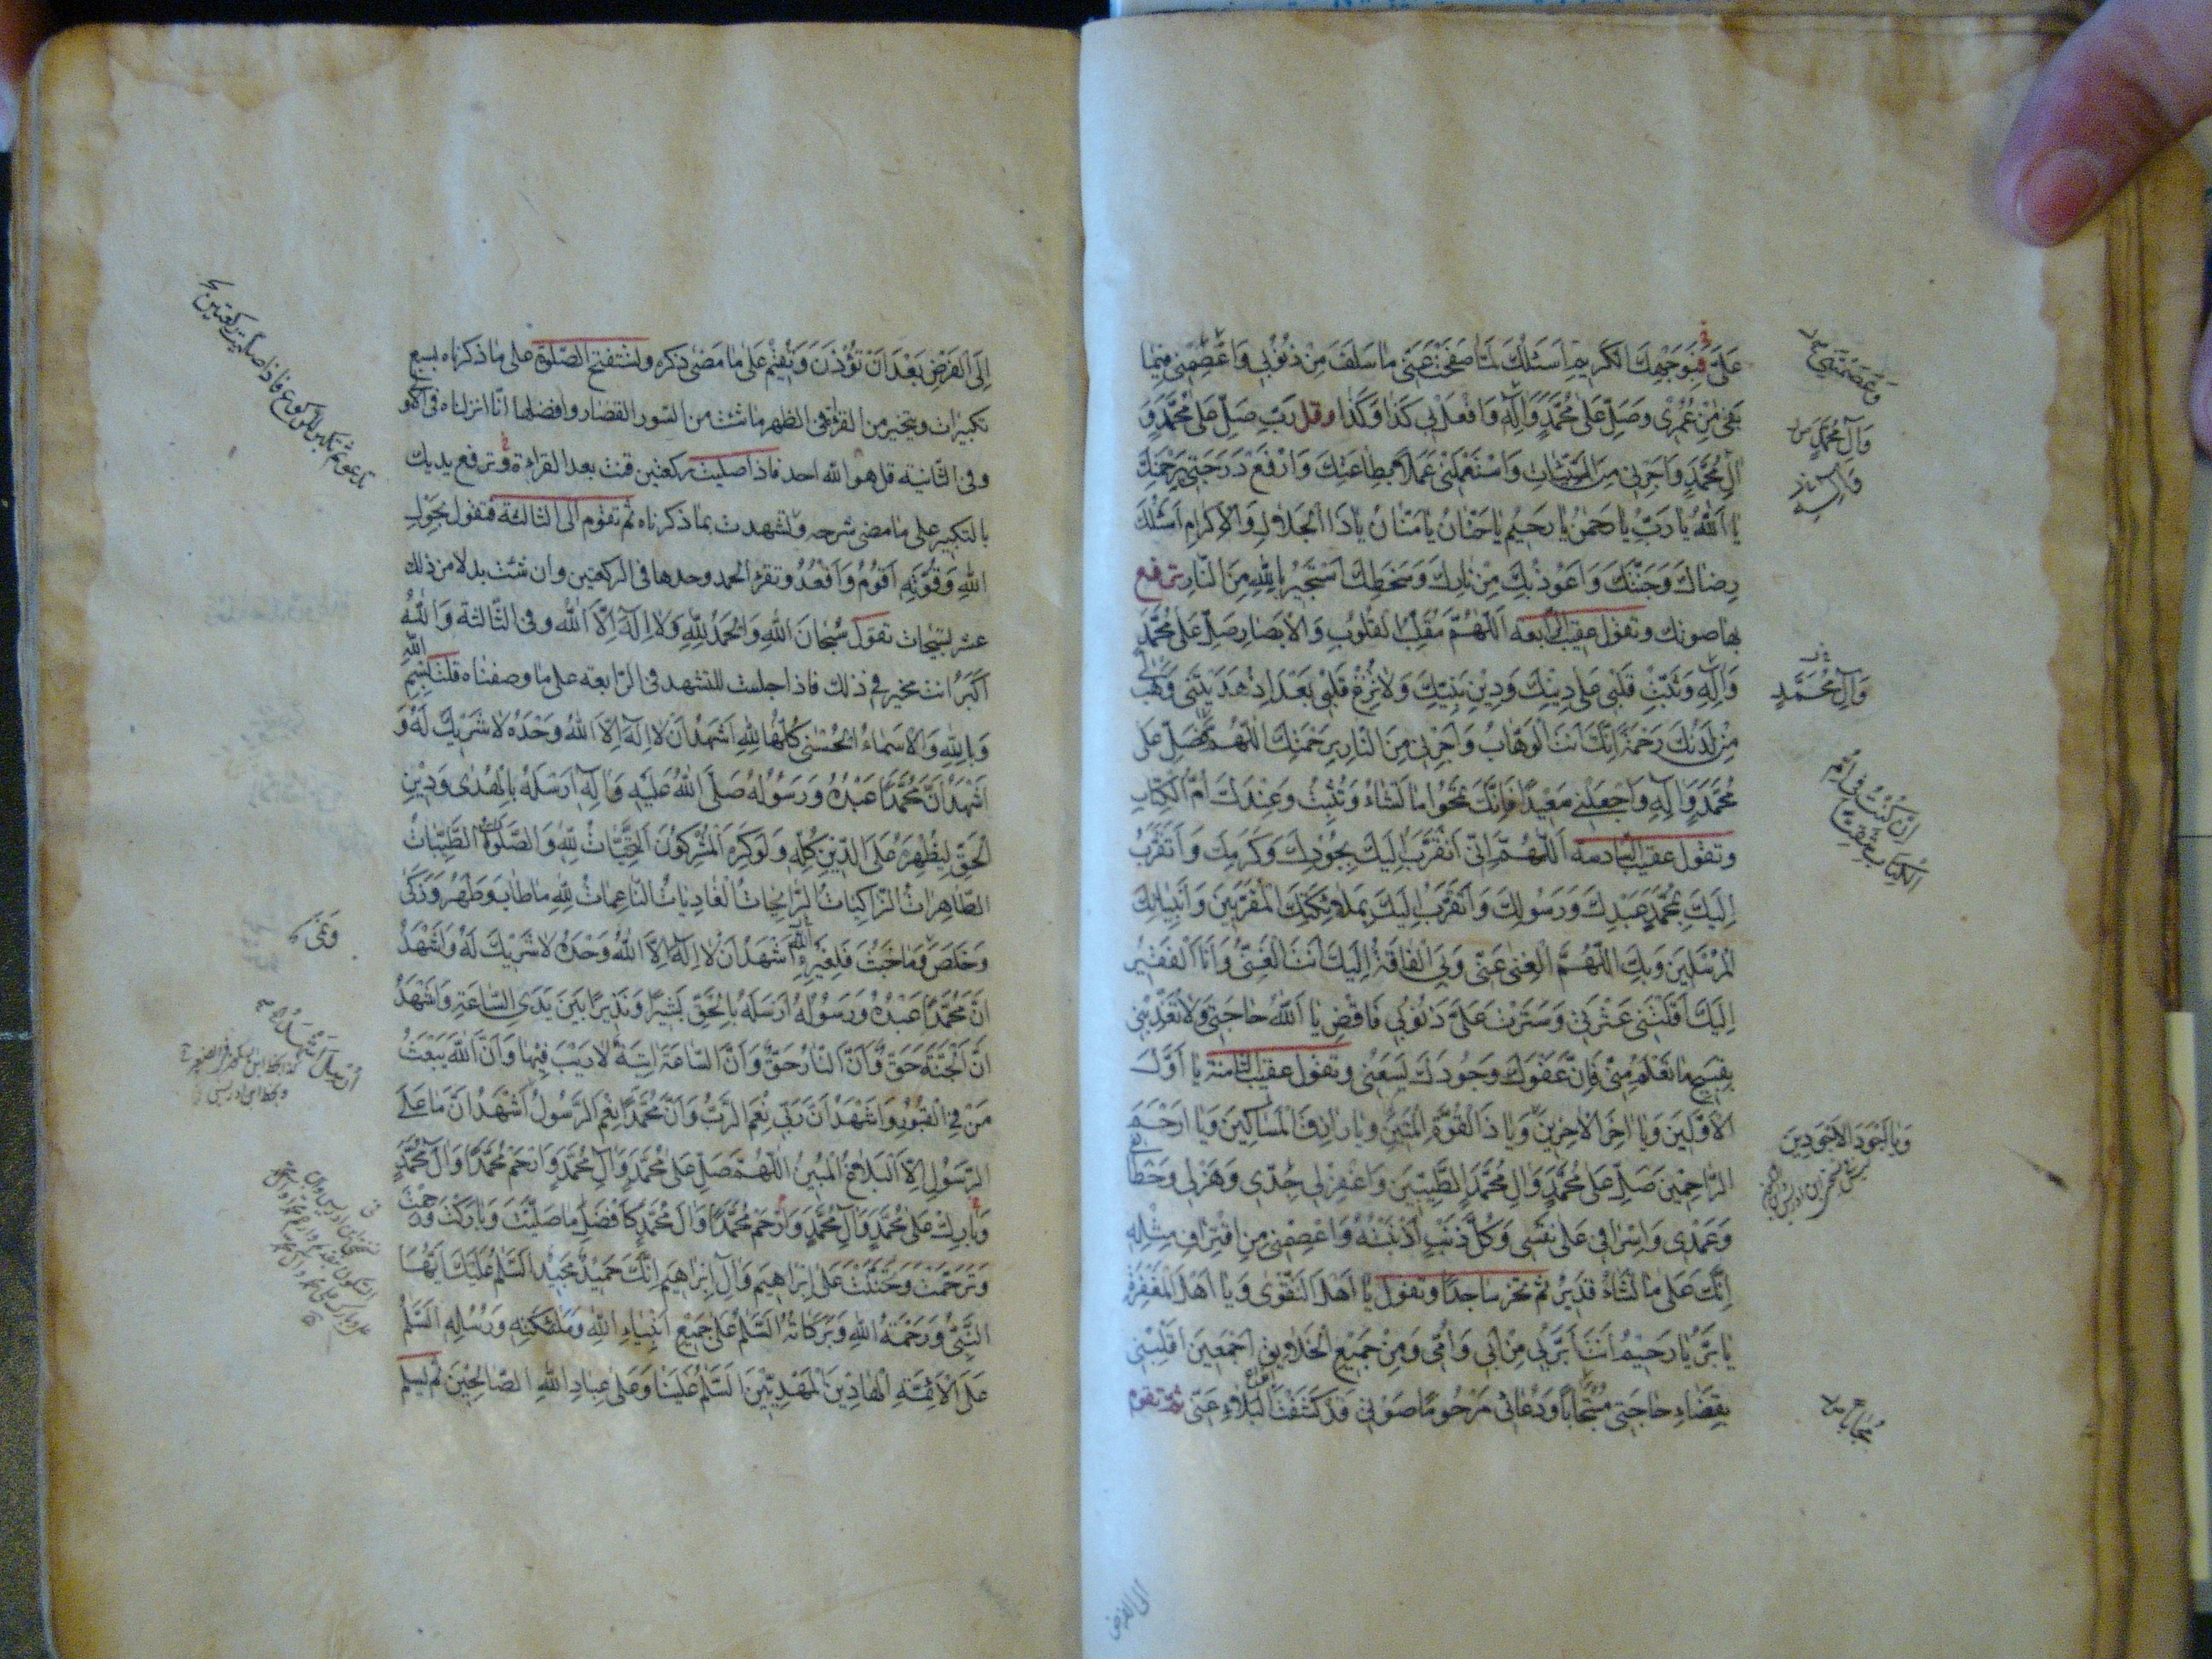 عَلَيَّ فَبِوَجْهِكَ الْكَرِيمِ اَسْئَلُكَ لَمَّا صَفَحْتَ عَنّى ما سَلَفَ مِنْ ذُنُوبي وَاعْصِمْنى فيما
بَقِىَ مِنْ عُمْرِى وَصَلِّ عَلى مُحَمَّدٍ وَالِهِ وَافْعَلْ بى كَذا وَكَذا وقل رَبِّ صَلِّ عَلى مُحَمَّدٍ وَ
الِ مُحَمَّدٍ وَاَجِرْنى مِنَ السَّيِّئاتِ وَاسْتَعْمِلْنى عَمَلاً بِطاعَتِكَ وَارْفَعْ دَرَجَتى بِرَحْمَتِكَ
يا اَللهُ يا رَبِّ يا رَحْمنُ يا رَحيمُ يا حَنّانُ يا مَنّانُ يا ذَا الْجَلالِ وَالْاِكْرامِ اَسْئَلُكَ
رِضاكَ وَجَنَّتَكَ وَاَعُوذُ بِكَ مِنْ نارِكَ وَسَخَطِكَ اَسْتَجيرُ بِاللهِ مِنَ النّارِ ترفع
بها صوتك وتقول عقيب الرابعة اَللّهُمَّ مُقَلِّبَ الْقُلُوبِ وَالْاَبْصارِ صَلِّ عَلى مُحَمَّدٍ
وَالِهِ وَثَبِّتْ قَلْبى عَلى دينِكَ وَدينِ نَبِيِّكَ وَلا تُزِغْ قَلْبى بَعْدَ اِذْ هَدَيْتَنى وَهَبْ لى
مِنْ لَدُنْكَ رَحْمَةً اِنَّكَ اَنْتَ الْوَهّابُ وَاَجِرْنى مِنَ النّارِ بِرَحْمَتِكَ اَللّهُمَّ صَلِّ عَلى
مُحَمَّدٍ وَالِهِ وَاجْعَلْنى سَعيداً فَاِنَّكَ تَمْحُوا ما تَشاءُ وَتُثْبِتُ وَعِنْدَكَ اُمُّ الْكِتابِ
وتقول عقيب السادسة اَللّهُمَّ اِنّى اَتَقَرَّبُ اِلَيْكَ بِجُودِكَ وَكَرَمِكَ وَاَتَقَرَّبُ
اِلَيْكَ بِمُحَمَّدٍ عَبْدِكَ وَرَسُولِكَ وَاَتَقَرَّبُ اِلَيْكَ بِمَلائِكَتِكَ الْمُقَرَّبينَ وَاَنْبِيائِكَ
الْمُرْسَلينَ وَبِكَ اَللّهُمَّ الْغِنى عَنّى وَبِىَ الْفاقَةُ اِلَيْكَ اَنْتَ الْغَنِىُّ وَاَنَا الْفَقيرُ
اِلَيْكَ اَقَلْتَنى عَثْرَتى وَسَتَرْتَ عَلَىَّ ذُنُوبى فَاقْضِ يا اَللهُ حاجَتى وَلا تُعَذِّبْنى
بِقَبيحِ ما تَعْلَمُ مِنّى فَاِنَّ عَفْوَكَ وَجُودَكَ يَسَعُنى وتقول عقيب الثامنة يا اَوَّلَ
الْاَوَّلينَ وَيا اخِرَ الْاخِرينَ وَيا ذَا الْقُوَّةِ الْمَتينِ وَيا رازِقَ الْمَساكينَ وَيا اَرْحَمَ
الرّاحِمينَ صَلِّ عَلى مُحَمَّدٍ وَالِ مُحَمَّدٍ الطَّيِّبينَ وَاغْفِرْ لى جِدّى وَهَزْلى وَخَطائى
وَعَمْدى وَاِسْرافى عَلى نَفْسى وَكُلَّ ذَنْبٍ اَذْنَبْتُهُ وَاعْصِمْنى مِنِ اقْتِرافِ مِثْلِهِ
اِنَّكَ عَلى ما تَشاءُ قَديرٌ ثم تخر ساجدا وتقول يا اَهْلَ التَّقْوى وَيا اَهْلَ الْمَغْفِرَةِ
يا بَرُّ يا رَحيمُ اَنْتَ اَبَرُّ بى مِنْ اَبى وَاُمّى وَمِنْ جَميعِ الْخَلايِقِ اَجْمَعينَ اَقْلِبْنى
بِقَضاءِ حاجَتى مُسْتَجاباً دُعائى مَرْحُوماً صَوْتى قَدْ كَشَفْتَ اَنْواعَ الْبَلاءِ عَنّى ثم تقوم
وَعَصَمْتَنى
وَآلِ مُحَمَّدٍ
وَآلِ مُحَمَّدٍ
اِنْ كُنْتُ فى اُمِّ
الْكِتابِ شَقِيّاً
وَيا اَجْوَدَ الْاَجْوَدينَ
مُجاباً
الى الفرض
اِلَى الْفَرْضِ بَعْدَ اَنْ تُؤَذِّنَ وَتُقيمَ عَلى ما مَضى ذِكره وتستفتح الصّلوة على ما ذكرناه بسبع
تكبيرات ويتخير من القراءة فى الظهر ما شئت من السّور القصار وافضلها انّا انزلناه فى الاولى
وفى الثّانية قل هو الله احد فاذا صليت ركعتين قنت بعد القراءة وترفع يديك
بالتكبير على ما مضى شرحه وتشهدت بما ذكرناه ثم تقوم الى الثالثة فتقول بِحَوْلِ
اللهِ وَقُوَّتِهِ اَقُومُ وَاَقْعُدُ وتقرء الحمد وحدها فى الركعتين وان شئت بدلا من ذلك
عشر تسبيحات تقول سُبْحانَ اللهِ وَالْحَمْدُ لِلّهِ وَلا اِلهَ اِلَّا اللهُ وفى الثّالثة وَاللهُ
اَكْبَرُ انت مخير فى ذلك فاذا جلست للتشهد فى الرّابعة على ما وصفناه قلت بِسْمِ اللهِ
وَبِاللهِ وَالْاَسْماءُ الْحُسْنى كُلُّها لِلّهِ اَشْهَدُ اَنْ لا اِلهَ اِلَّا اللهُ وَحْدَهُ لا شَريكَ لَهُ وَ
اَشْهَدُ اَنَّ مُحَمَّداً عَبْدُهُ وَرَسُولُهُ صَلَّى اللهُ عَلَيْهِ وَالِهِ اَرْسَلَهُ بِالْهُدى وَدينِ
الْحَقِّ لِيُظْهِرَهُ عَلَى الدّينِ كُلِّهِ وَلَوْ كَرِهَ الْمُشْرِكُونَ اَلتَّحِيّاتُ لِلّهِ وَالصَّلَواتُ الطَّيِّباتُ
الطّاهِراتُ الزّاكِياتُ الرّائِحاتُ الْغادِياتُ النّاعِماتُ لِلّهِ ما طابَ وَطَهُرَ وَزَكى
وَخَلَصَ وَما خَبُثَ فَلِغَيْرِ اللهِ اَشْهَدُ اَنْ لا اِلهَ اِلَّا اللهُ وَحْدَهُ لا شَريكَ لَهُ وَاَشْهَدُ
اَنَّ مُحَمَّداً عَبْدُهُ وَرَسُولُهُ اَرْسَلَهُ بِالْحَقِّ بَشيراً وَنَذيراً بَيْنَ يَدَىِ السّاعَةِ وَاَشْهَدُ
اَنَّ الْجَنَّةَ حَقٌّ وَاَنَّ النّارَ حَقٌّ وَاَنَّ السّاعَةَ اتِيَةٌ لا رَيْبَ فيها وَاَنَّ اللهَ يَبْعَثُ
مَنْ فِى الْقُبُورِ وَاَشْهَدُ اَنَّ رَبّى نِعْمَ الرَّبُّ وَاَنَّ مُحَمَّداً نِعْمَ الرَّسُولُ اَشْهَدُ اَنَّ ما عَلَى
الرَّسُولِ اِلَّا الْبَلاغُ الْمُبينُ اَللّهُمَّ صَلِّ عَلى مُحَمَّدٍ وَالِ مُحَمَّدٍ وَارْحَمْ مُحَمَّداً وَالَ مُحَمَّدٍ
وَبارِكْ عَلى مُحَمَّدٍ وَآلِ مُحَمَّدٍ وَارْحَمْ مُحَمَّداً وَالَ مُحَمَّدٍ كَاَفْضَلِ ما صَلَّيْتَ وَبارَكْتَ وَرَحِمْتَ
وَتَرَحَّمْتَ وَتَحَنَّنْتَ عَلى اِبْراهيمَ وَآلِ اِبْراهيمَ اِنَّكَ حَميدٌ مَجيدٌ اَلسَّلامُ عَلَيْكَ اَيُّهَا
النَّبِىُّ وَرَحْمَةُ اللهِ وَبَرَكاتُهُ اَلسَّلامُ عَلى جَميعِ اَنْبِياءِ اللهِ وَمَلئِكَتِهِ وَرُسُلِهِ اَلسَّلامُ
عَلَى الْاَئِمَّةِ الْهادينَ الْمَهْدِيّينَ اَلسَّلامُ عَلَيْنا وَعَلى عِبادِ اللهِ الصّالِحينَ ثم يسلم